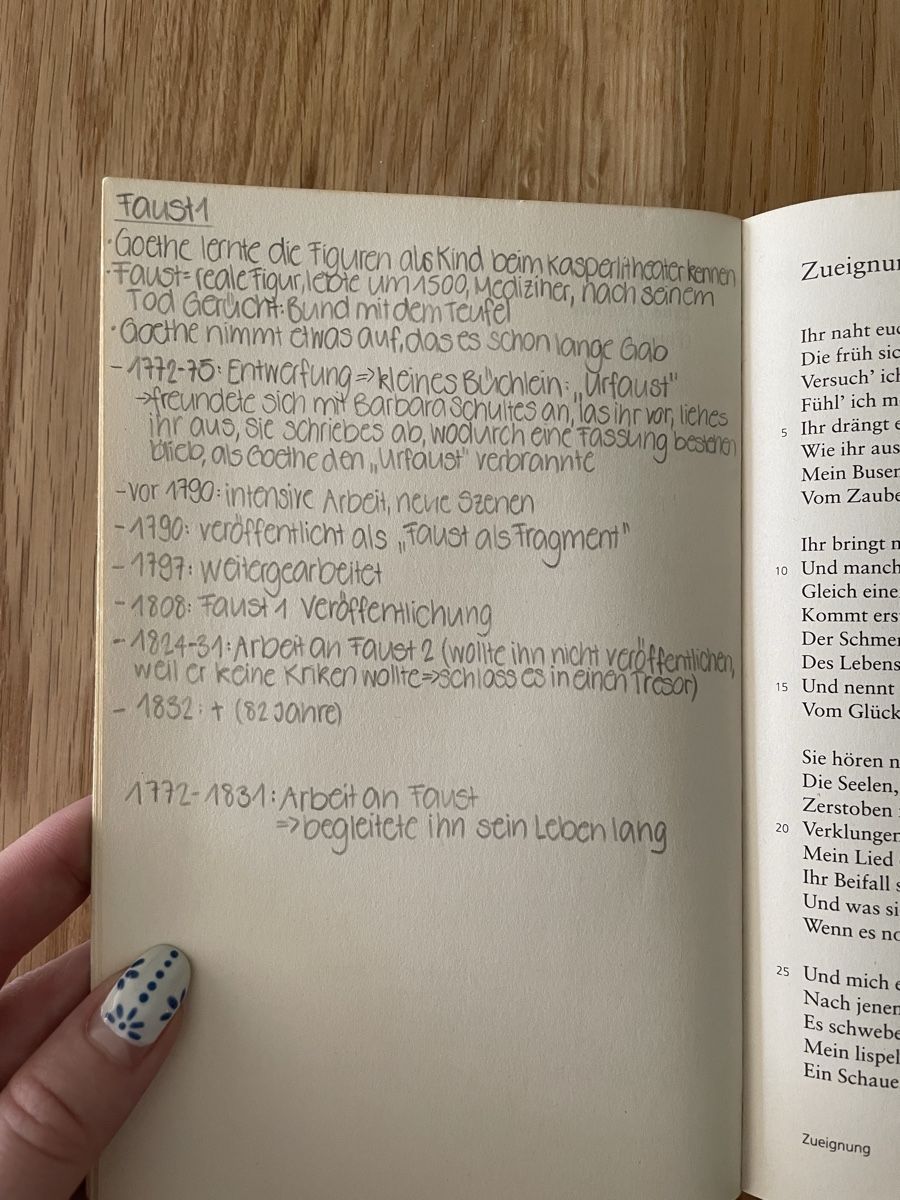 Faust 1
· Goethe lernte die Figuren als Kind beim Kasperlitheater kennen
· Faust = reale Figur, lebte um 1500, Mediziner, nach seinem
Tod Gerücht: Bund mit dem Teufel
· Goethe nimmt etwas auf, das es schon lange Gab
- 1772-75: Entwerfung => kleines Büchlein: „Urfaust"
-> freundete sich mit Barbara Schultes an, las ihr vor, liehes
ihr aus, sie schrieb es ab, wodurch eine Fassung bestehen
blieb, als Goethe den „Urfaust" verbrannte
- vor 1790: intensive Arbeit, neue Szenen
- 1790: veröffentlicht als „Faust als Fragment"
- 1797: weitergearbeitet
- 1808: Faust 1 Veröffentlichung
- 1824-31: Arbeit an Faust 2 (wollte ihn nicht veröffentlichen,
weil er keine Kriken wollte => schloss es in einen Tresor)
- 1832: † (82 Jahre)
1772-1831: Arbeit an Faust
=> begleitete ihn sein Leben lang
Zueignu
Ihr naht euc
Die früh sic
Versuch' ich
Fühl' ich m
5 Ihr drängt e
Wie ihr aus
Mein Busen
Vom Zaube
Ihr bringt m
10 Und manch
Gleich eine
Kommt ers
Der Schmer
Des Lebens
15 Und nennt
Vom Glück
Sie hören n
Die Seelen,
Zerstoben
20 Verklungen
Mein Lied
Ihr Beifall s
Und was si
Wenn es no
25 Und mich e
Nach jenen
Es schwebe
Mein lispel
Ein Schaue
Zueignung